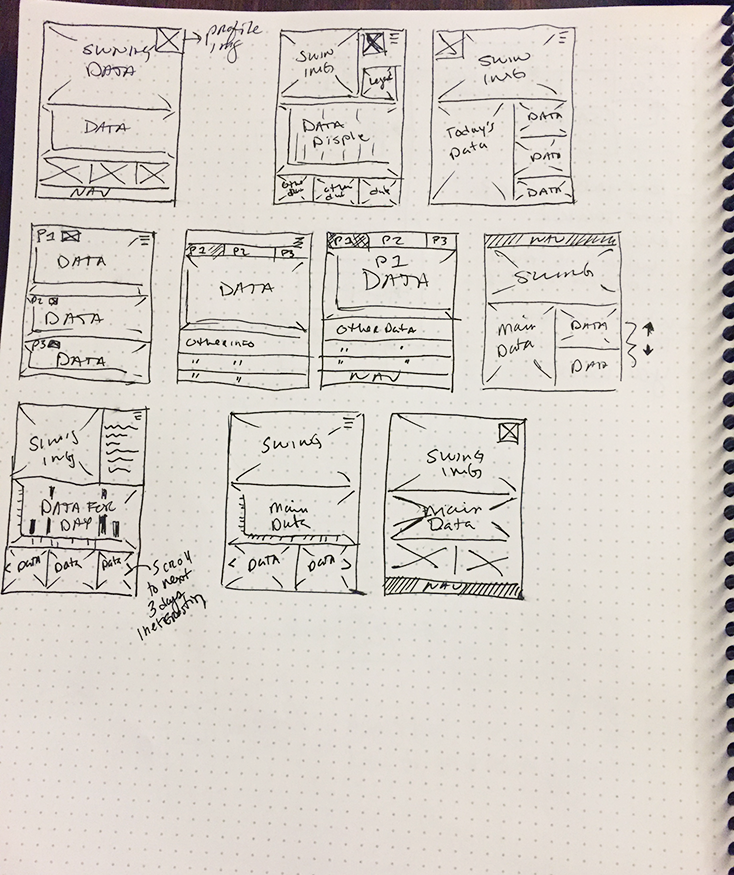 SWING
DATA
profile
img
DATA
NAV
SWIN
IMG
Legend
DATA
Disple
other
data
other
data
data
SWIN
IMG
Today's
Data
DATA
DATA
DATA
P1
DATA
P2
DATA
P3
DATA
P1 P2 P3
DATA
Other info
" "
" "
P1 P2 P3
P1
DATA
Other Data
" "
"
NAV
NAV
SWING
Main
Data
DATA
DATA
SWING
IMG
DATA FOR
DAY
DATA Data Data
SCROll
to next
3 days
SWING
Main
Data
< DATA DATA >
SWING
IMG
Main
Data
NAV